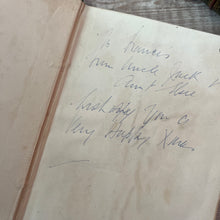 To Frances
from Uncle Jack &
Aunt
Wishing you a
Very Happy Xmas